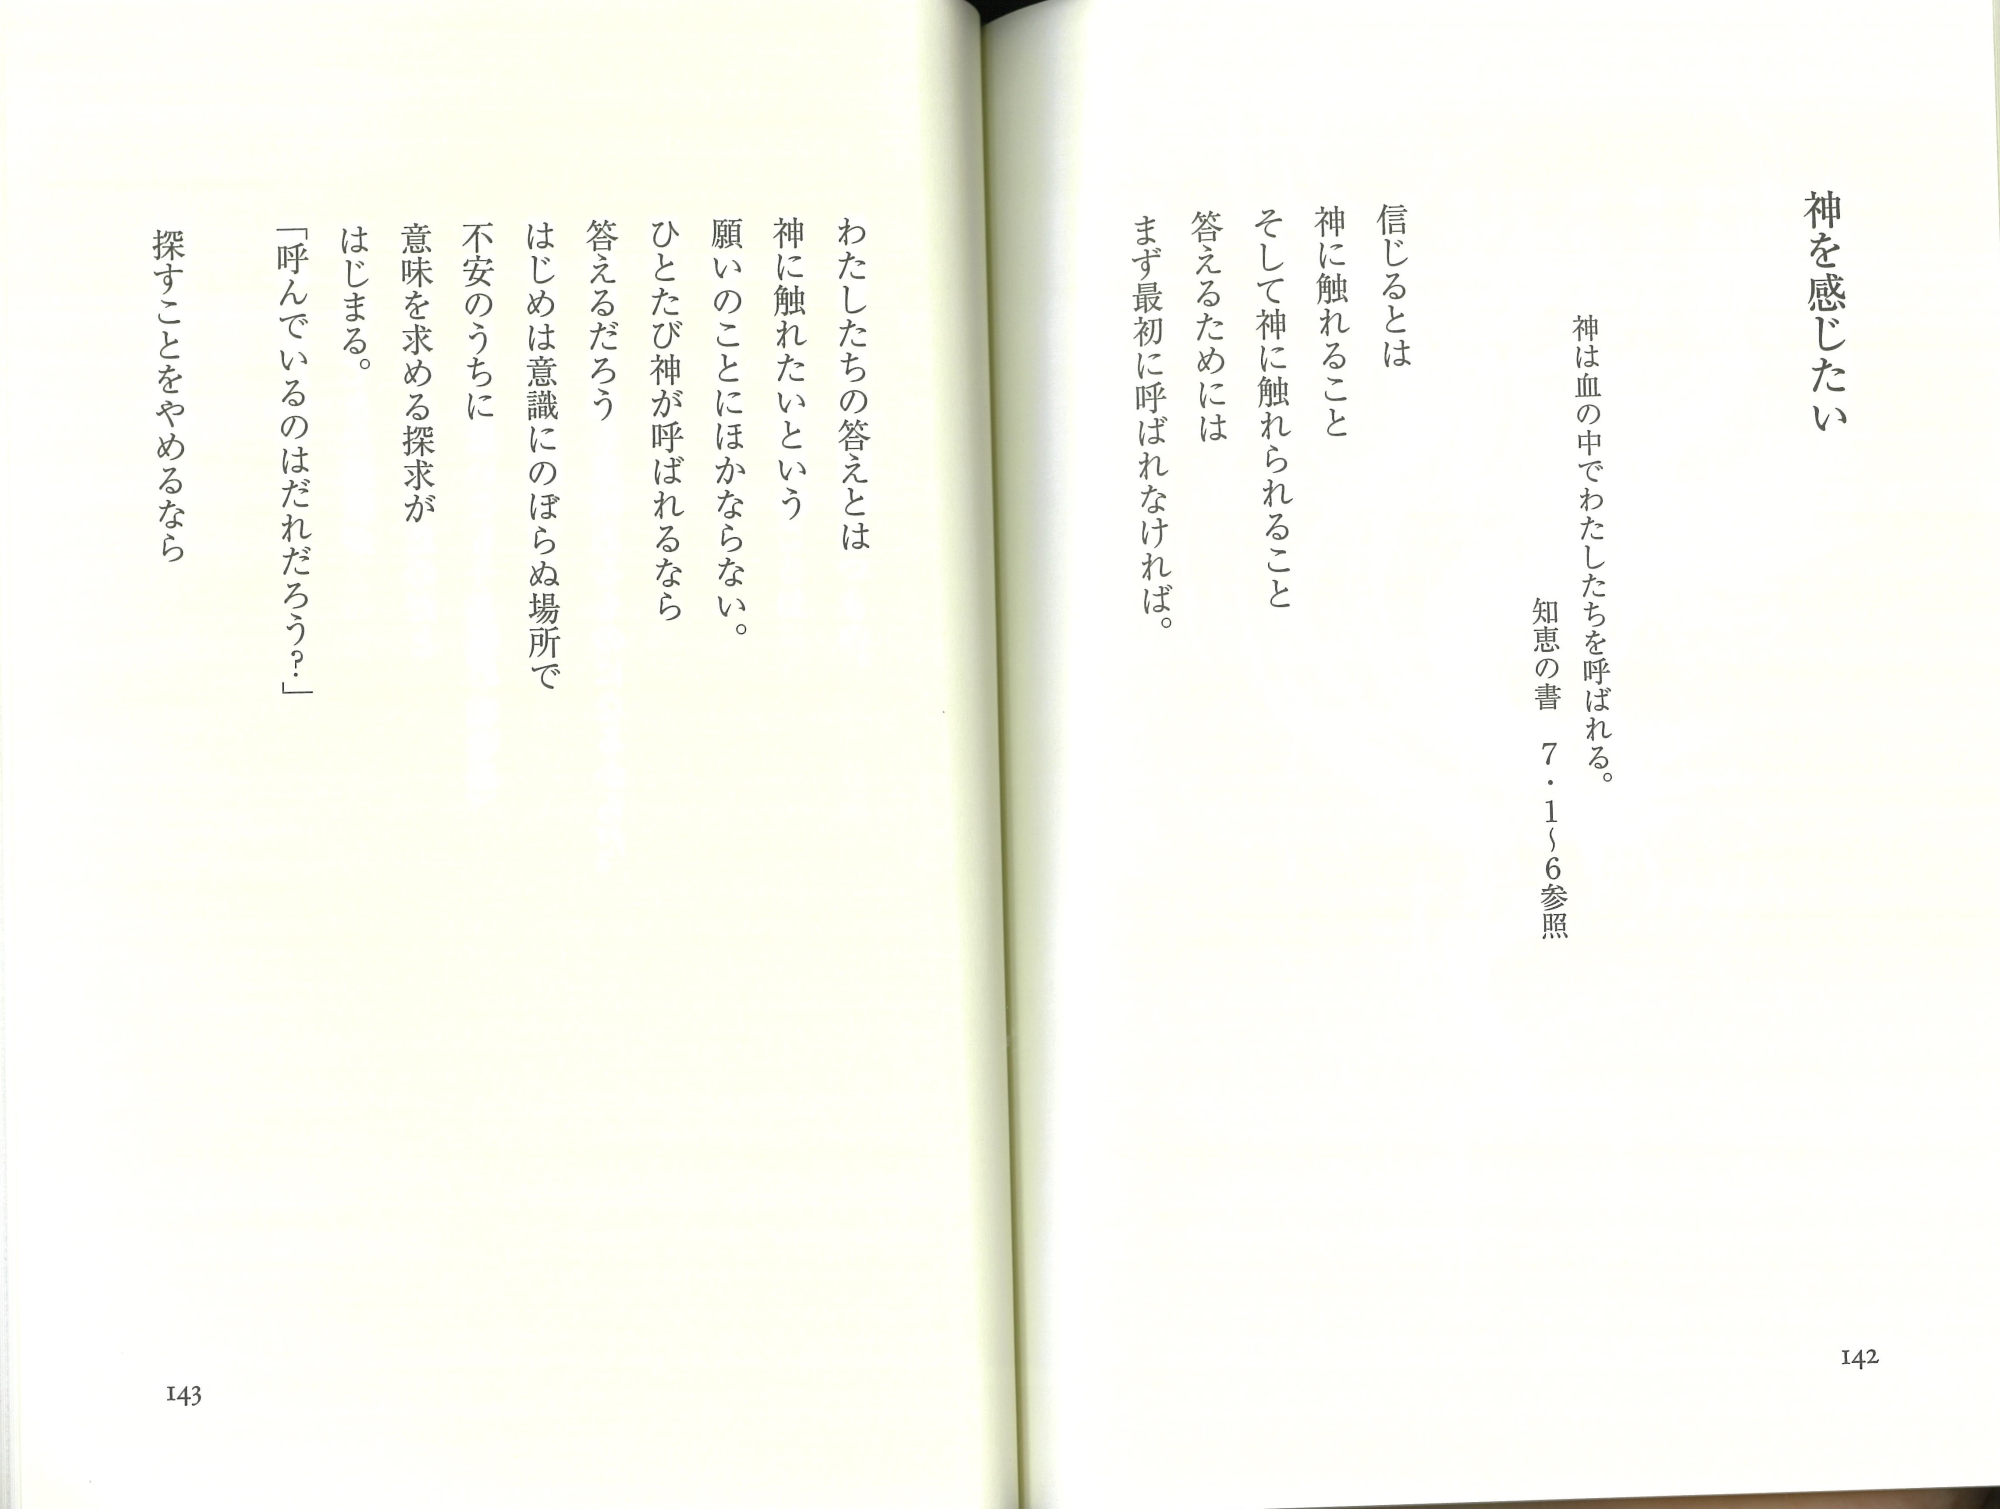 神を感じたい
神は血の中でわたしたちを呼ばれる。
知恵の書　7・1〜6参照
信じるとは
神に触れること
そして神に触れられること
答えるためには
まず最初に呼ばれなければ。
142
わたしたちの答えとは
神に触れたいという
願いのことにほかならない。
ひとたび神が呼ばれるなら
答えるだろう
はじめは意識にのぼらぬ場所で
不安のうちに
意味を求める探求が
はじまる。
「呼んでいるのはだれだろう?」
探すことをやめるなら
143